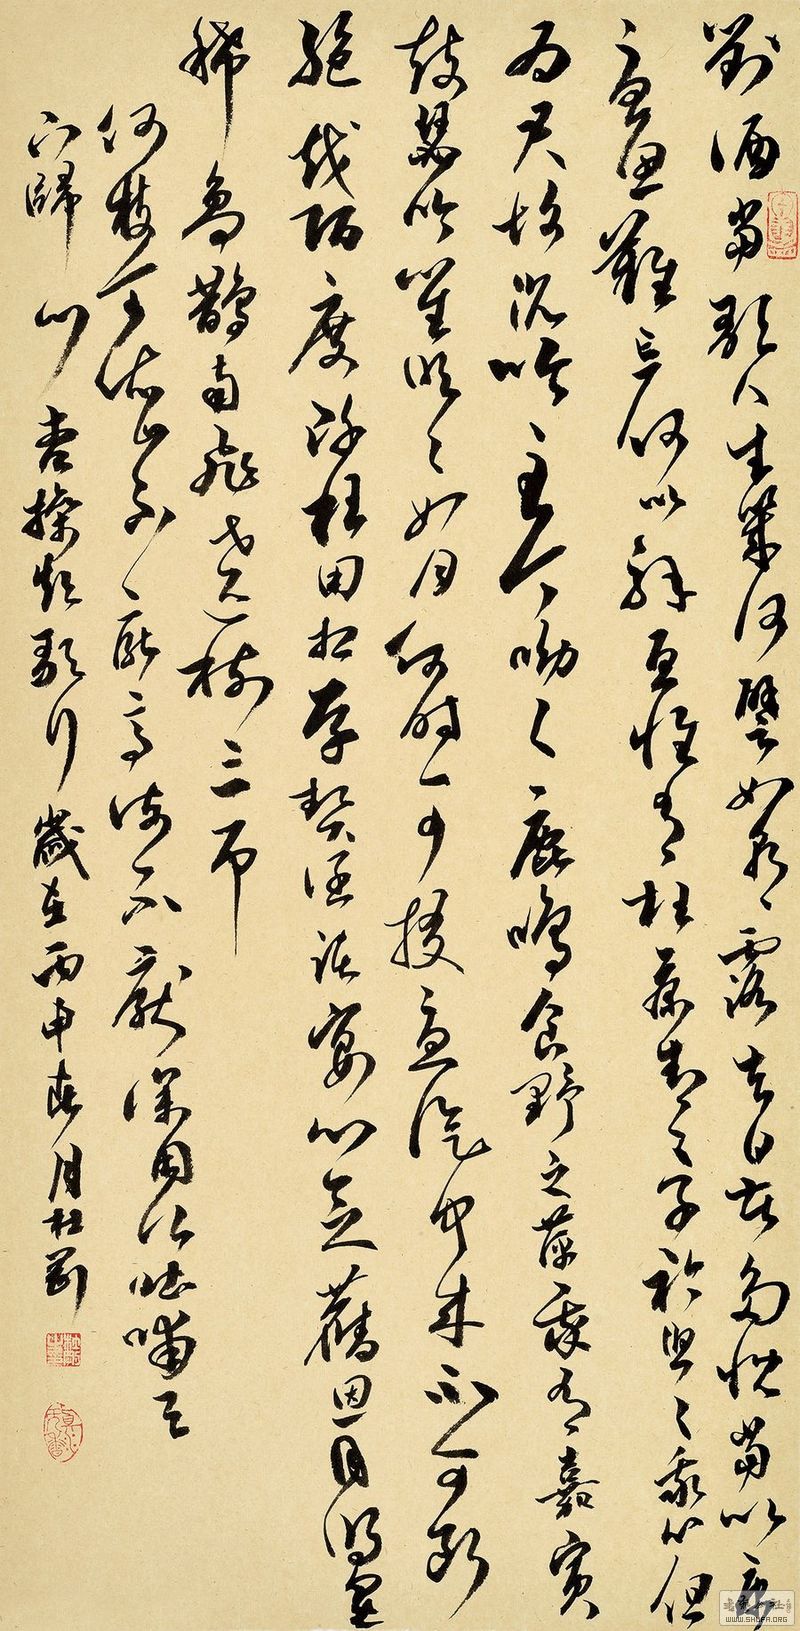 對酒當歌人生幾何譬如朝露去日苦多慨當以慷
憂思難忘何以解憂惟有杜康青〻子衿悠〻我心但
為君故沉吟至今呦〻鹿鳴食野之苹我有嘉賓
鼓瑟吹笙明〻如月何時可掇憂從中來不可斷
絕越陌度阡枉用相存契闊談宴心念舊恩月明星
稀烏鵲南飛繞樹三匝
何枝可依山不厭高海不厭深周公吐哺天
下歸心曹操短歌行歲在丙申春月杜
WWW.SHUFA.ORG